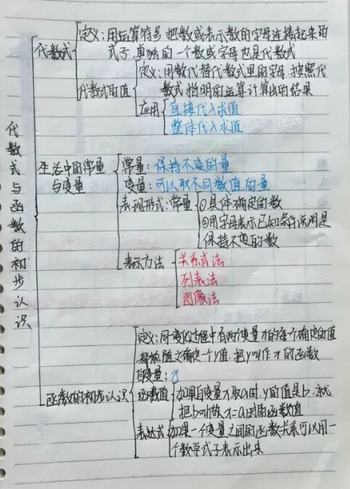 代数式与函数的初步认识
代数式
定义：用运算符号把数或表示数的字母连接起来的
式子，单独的一个数或字母也是代数式
代数式的值
定义：用数代替代数式里的字母，按照代
数式指明的运算计算出的结果
应用
直接代入求值
整体代入求值
生活中的常量
与变量
常量：保持不变的量
变量：可以取不同数值的量
表现形式：常量
①具体确定的数
②用字母表示已知条件说明是
保持不变的数
表示方法
关系式法
列表法
图像法
函数的初步认识
定义：同一变化过程中有两个变量 x的每个确定的值
都能随之确定一个y值，把y叫作x的函数
自变量：x
函数值
如果自变量x取a时，y的值是b，就
把b叫做x=a时的函数值
表达式
如果一个变量之间的函数关系可以用一
个数学式子表示出来